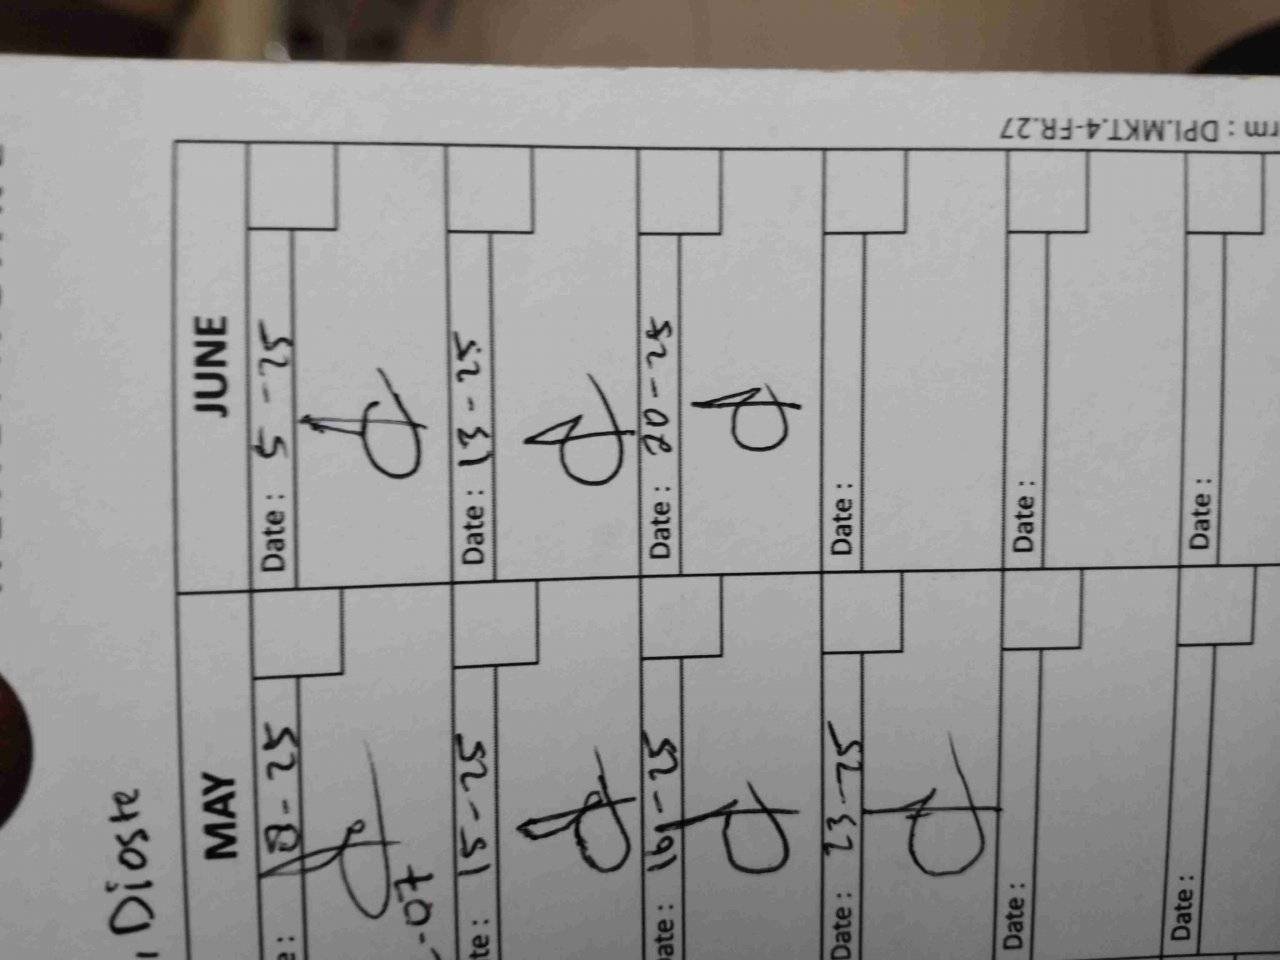 Dioste
MAY
JUNE
8-25
Date : 5-25
-07
15-25
Date : 13-25
Date : 16-25
Date : 20-25
Date : 23-25
Date :
Date :
Date :
Date :
Date :
rm : DPI.MKT.4-FR.27